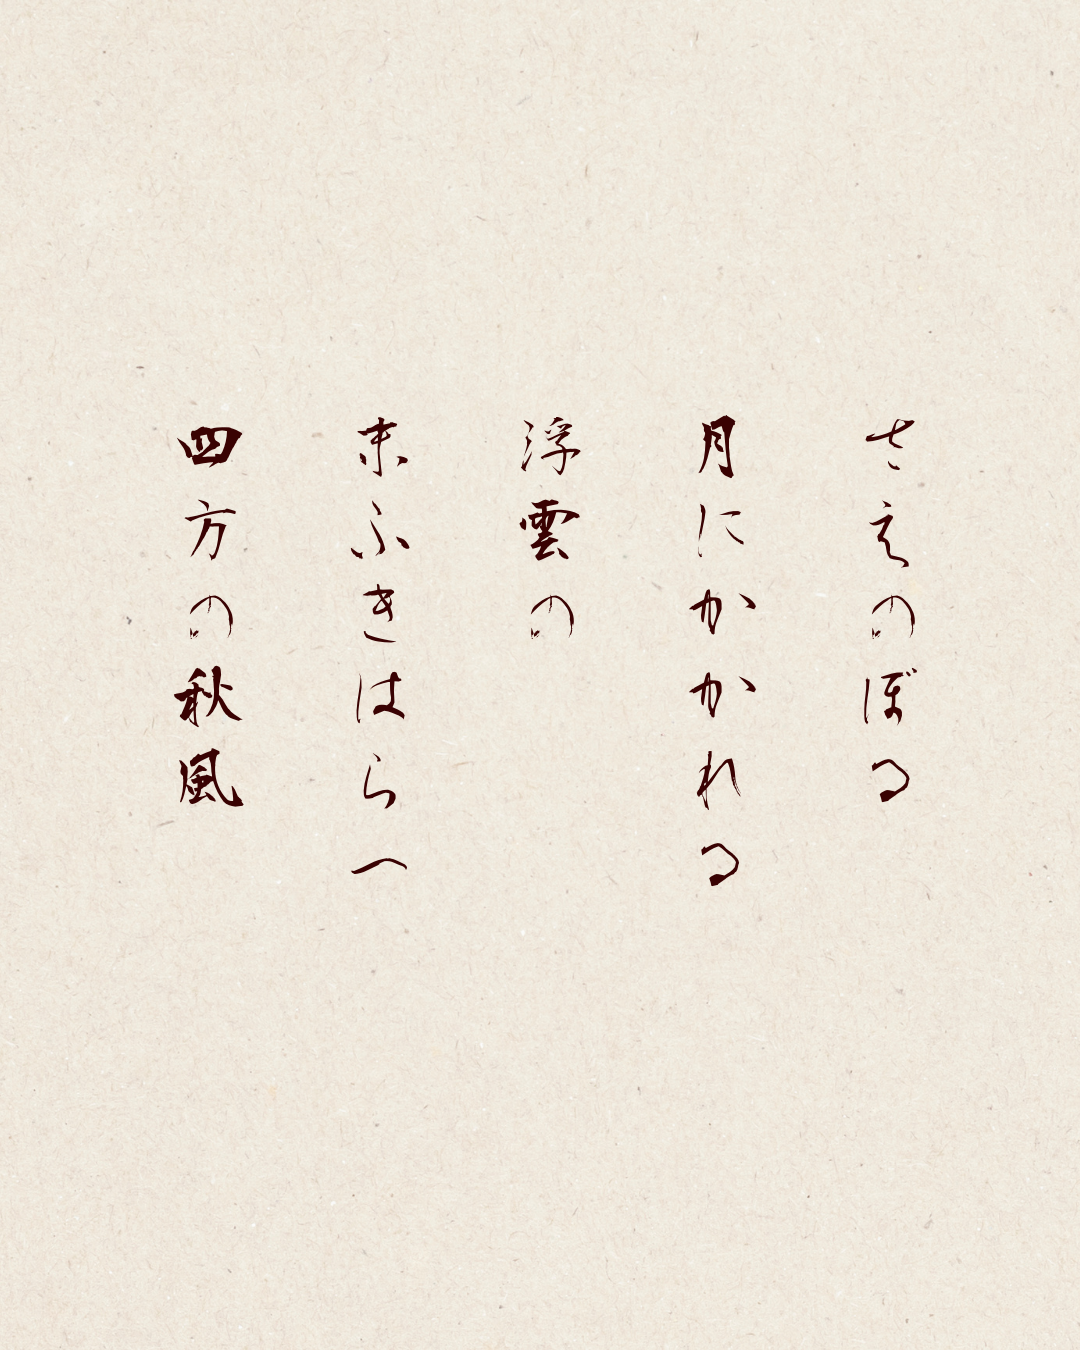 さえのぼる
月にかかれる
浮雲の
末ふきはらへ
四方の秋風